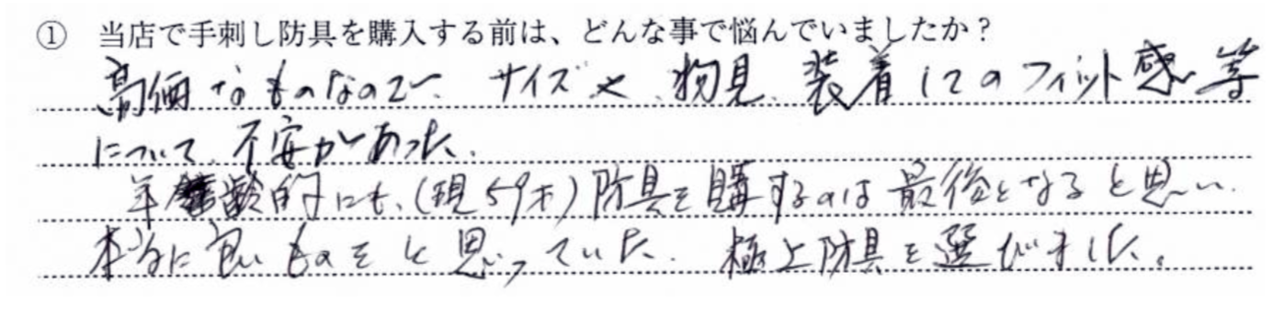 ① 当店で手刺し防具を購入する前は、どんな事で悩んでいましたか？
高価なものなので、サイズや、物見、装着してのフィット感等
について、不安があった。
年齢的にも、(現59才)防具を購するのは最後となると思い、
本当に良いものをと思っていた。極上防具を選びました。